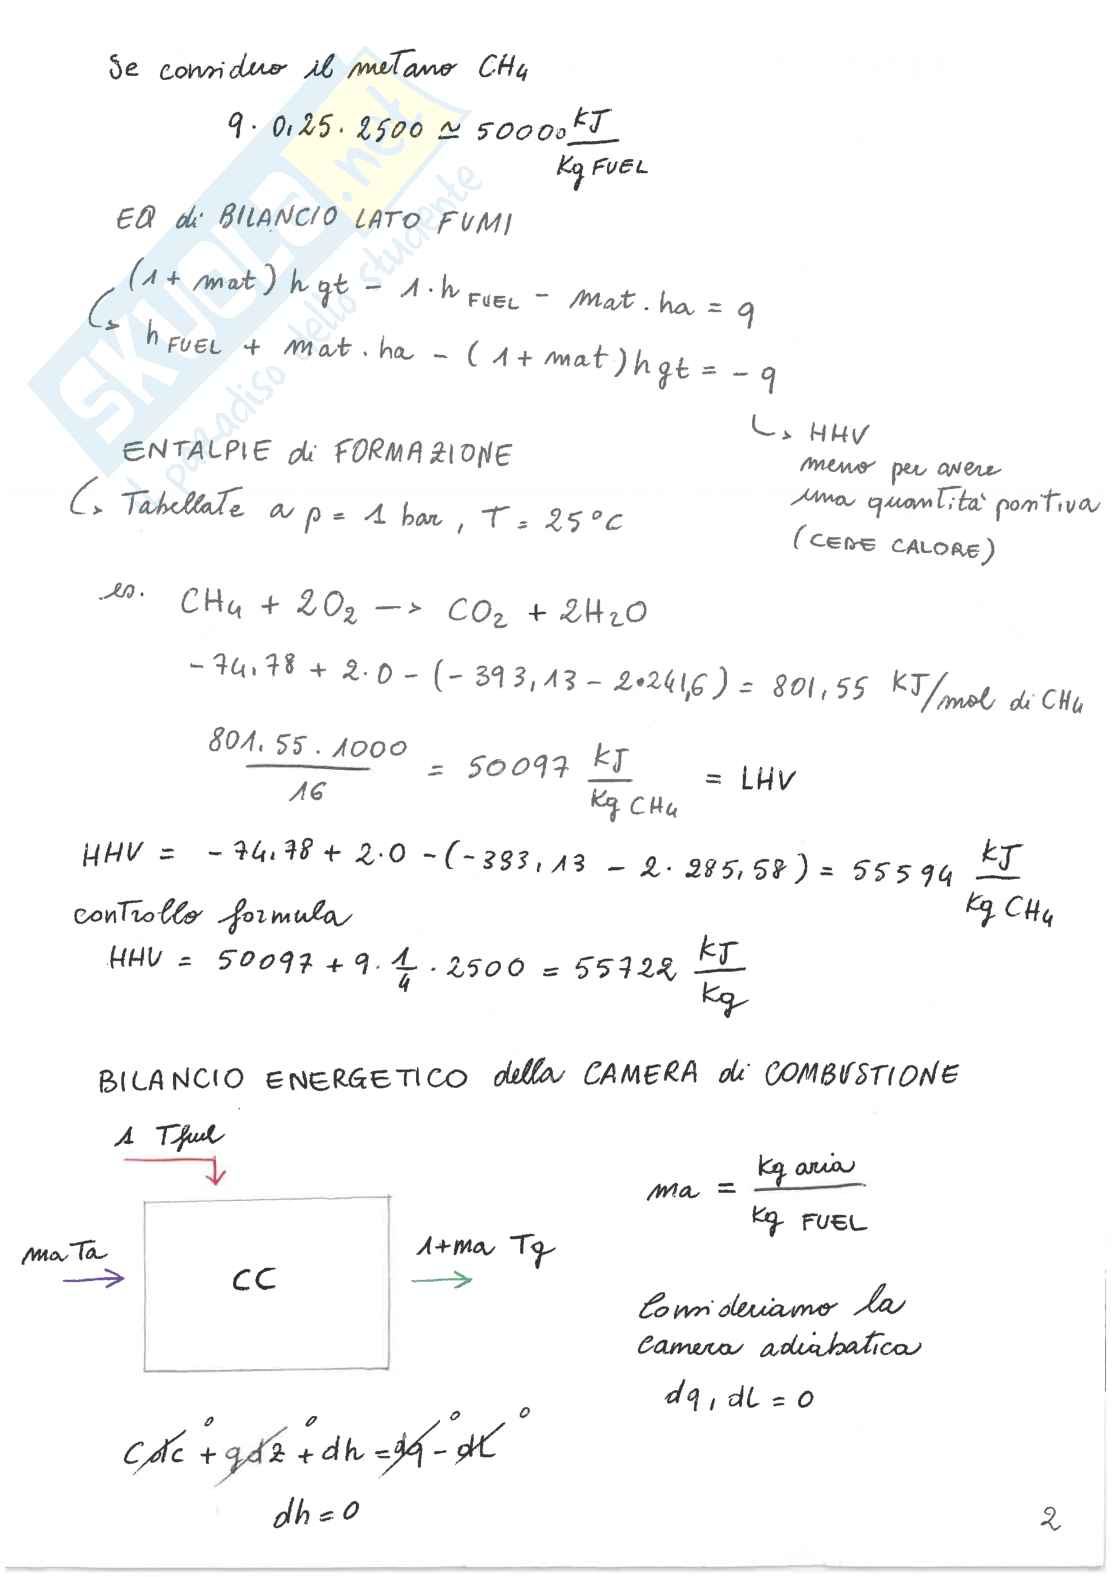 Se considero il metano CH4
9 · 0,25 · 2500 ≃ 50000 KJ/Kg FUEL
EQ di BILANCIO LATO FUMI
(1 + mat) h gt - 1 · h FUEL - mat · ha = q
h FUEL + mat · ha - (1 + mat) h gt = - q
↳ HHV
meno per avere
una quantità positiva
(CEDE CALORE)
ENTALPIE di FORMAZIONE
↳ Tabellate a p = 1 bar, T = 25°C
es. CH4 + 2O2 -> CO2 + 2H2O
- 74,78 + 2·0 - (- 393,13 - 2·241,6) = 801,55 KJ/mol di CH4
801,55 · 1000 / 16 = 50097 KJ/Kg CH4 = LHV
HHV = - 74,78 + 2·0 - (-393,13 - 2 · 285,58) = 55594 KJ/Kg CH4
controllo formula
HHV = 50097 + 9 · 1/4 · 2500 = 55722 KJ/Kg
BILANCIO ENERGETICO della CAMERA di COMBUSTIONE
1 Tfuel
ma Ta
CC
1+ma Tg
ma = Kg aria / Kg FUEL
Consideriamo la
camera adiabatica
dq, dL = 0
cdc + gdz + dh = dq - dL
0 0 0 0
dh = 0
2
SKUOLA.net
il paradiso dello studente